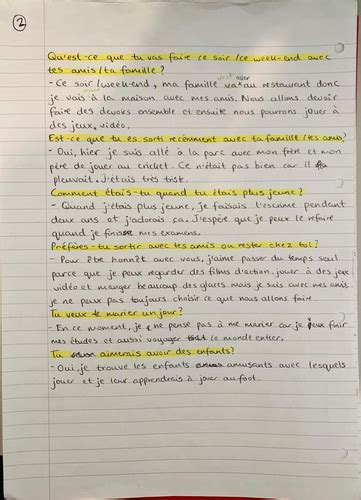 2
Qu'est-ce que tu vas faire ce soir/ce week-end avec
tes amis/ta famille?
- Ce soir/week-end, ma famille va au restaurant donc
vont aller
je vais à la maison avec mes amis. Nous allons devoir
faire des devoirs ensemble et ensuite nous pourrons jouer à
des jeux vidéo.
Est-ce que tu es sorti recemment avec ta famille/tes amis?
- Oui, hier je suis allé à la parc avec mon frère et mon
père de jouer au cricket. Ce n'était pas bien car il
pleuvait. J'étais très trist.
Comment étais-tu quand tu étais plus jeune?
- Quand j'étais plus jeune, je faisais l'escrime pendant
deux ans et j'adorais ça. J'espère que je peux le refaire
quand je finisse mes examens.
Préfères-tu sortir avec tes amis ou rester chez toi?
- Pour être honnêt avec vous, j'aime passer du temps seul
parce que je peux regarder des films d'action, jouer à des jeux
vidéo et manger beaucoup des glaces mais je suis avec mes amis,
je ne peux pas toujours choisir ce que nous allons faire.
Tu veux te marier un jour?
- En ce moment, je ne pense pas à me marier car je veux finir
mes études et aussi voyager le monde entier.
Tu aimerais avoir des enfants?
- Oui, je trouve les enfants amusants avec lesquels
jouer et je leur apprendrais à jouer au foot.